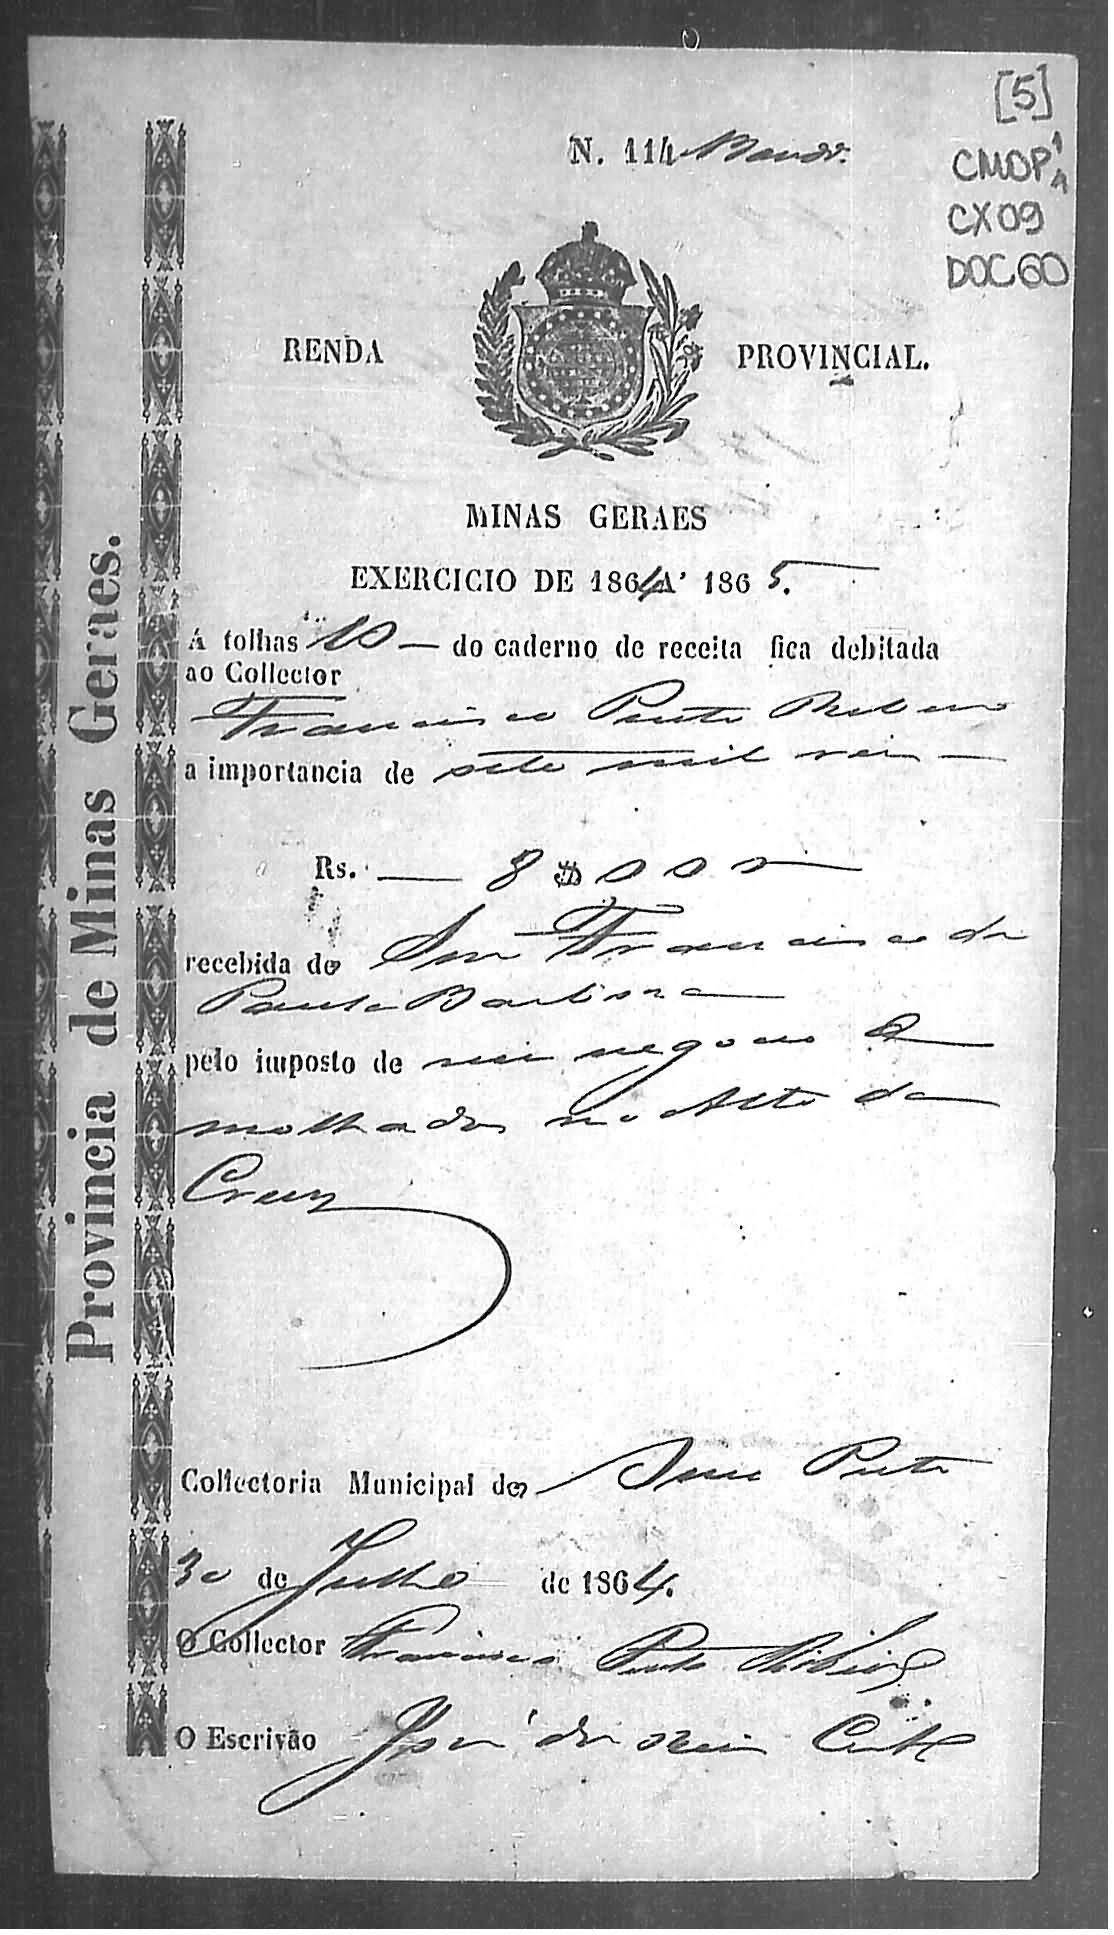 [5]
CMOP
CX09
DOC60
N. 114
RENDA PROVINCIAL.
MINAS GERAES
EXERCICIO DE 1864 A' 1865.
Á folhas 10 — do caderno de receita fica debitada
ao Collector
Francisco Pinto Ribeiro
a importancia de sete mil reis —
Rs. — 8$000
recebida de Snr Francisco de
Paula Baptista
pelo imposto de seu negocio de
molhados no Alto da
Cruz
Collectoria Municipal de Ouro Preto
30 de Julho de 1864.
O Collector Francisco Pinto Ribeiro
O Escrivão José dos Reis
Provincia de Minas Geraes.